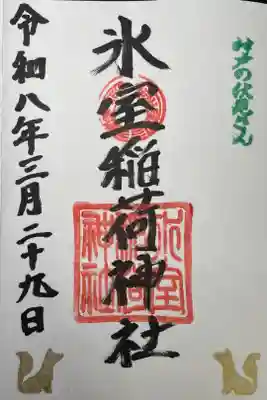 神戸の伏見さん
氷室稲荷神社
氷室
稲荷
神社
令和八年三月二十九日